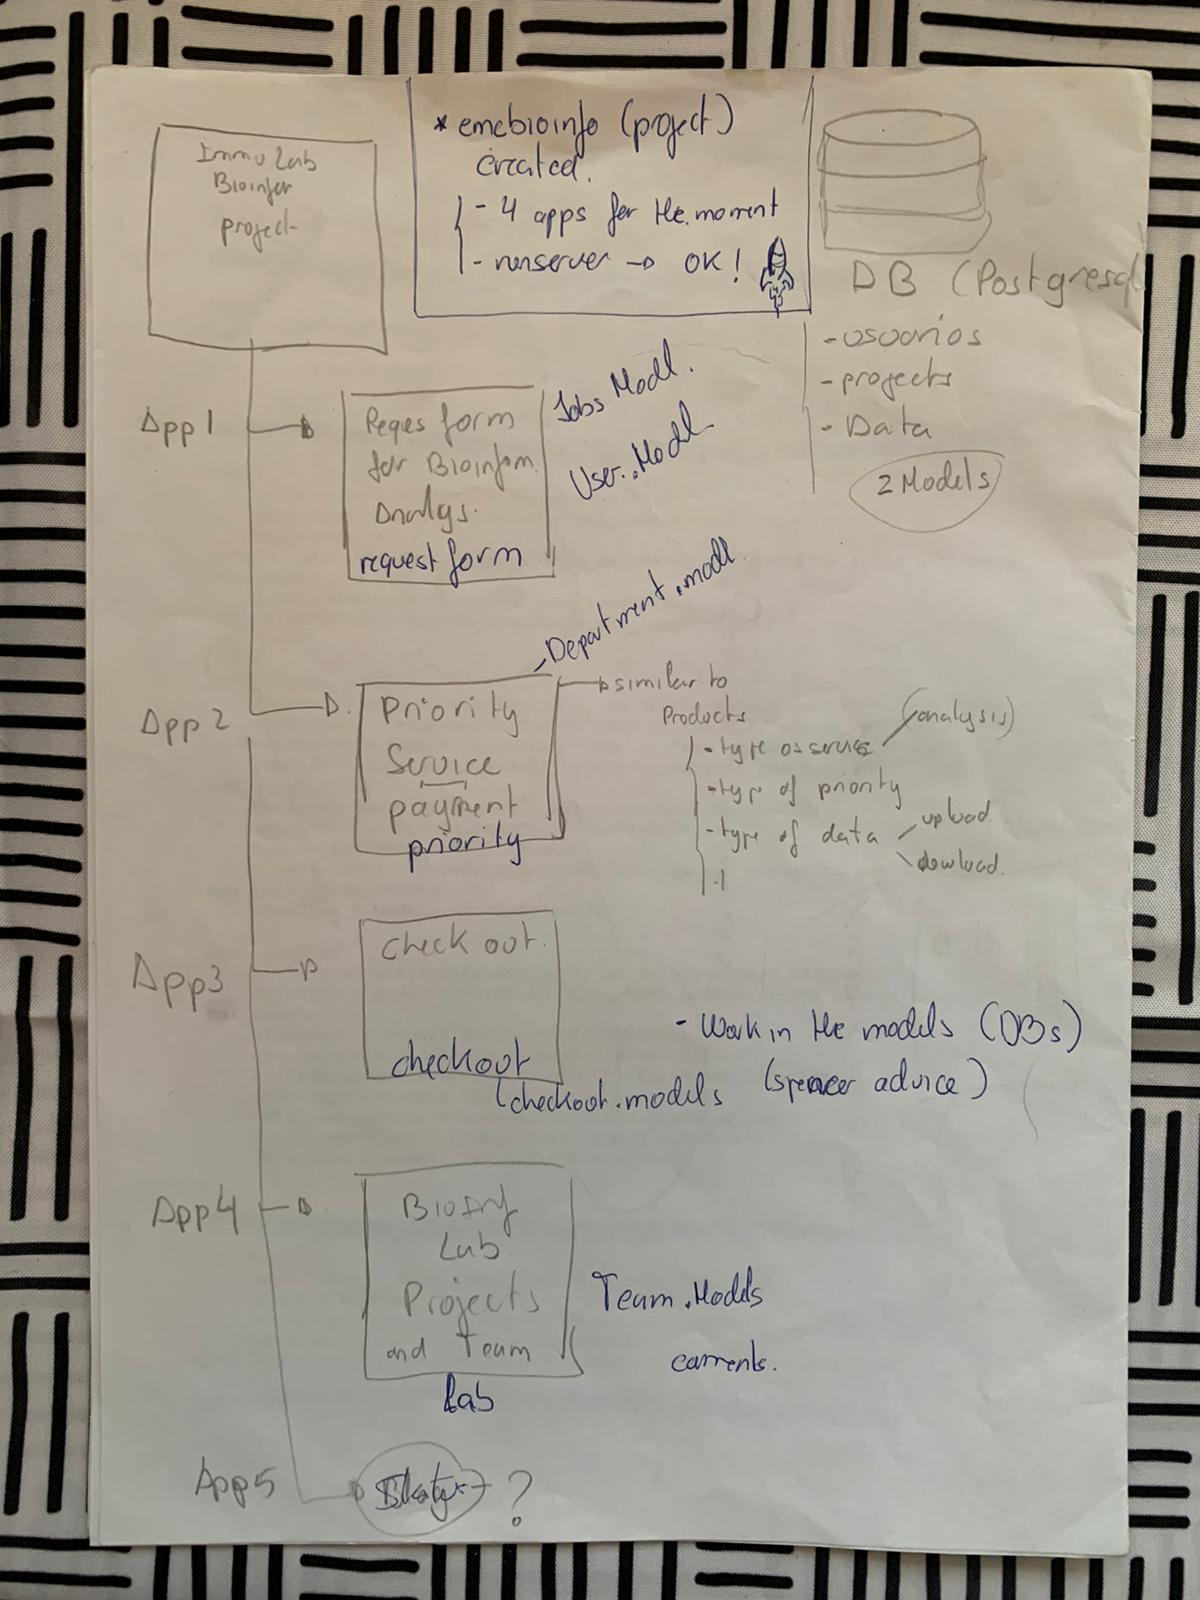 Immu Lab
Bioinfor
project
* emebioinfo (project)
created.
- 4 apps for the moment
- runserver → OK!
DB (Postgresql
- usuarios
- projects
- Data
2 Models
App 1
Reques form
for Bioinfom.
Analys.
request form
Jobs Modl.
User.Model
App 2
Priority
Service
payment
priority
Department.modl.
similar to
Products
- type os service (analysis)
- type of priority
- type of data
upload
dowload.
App3
check out.
checkout
checkout.models
- Work in the models (DBs)
(spencer advice)
App4
Lab
Projects
and Team
Lab
Team.Models
App5
?